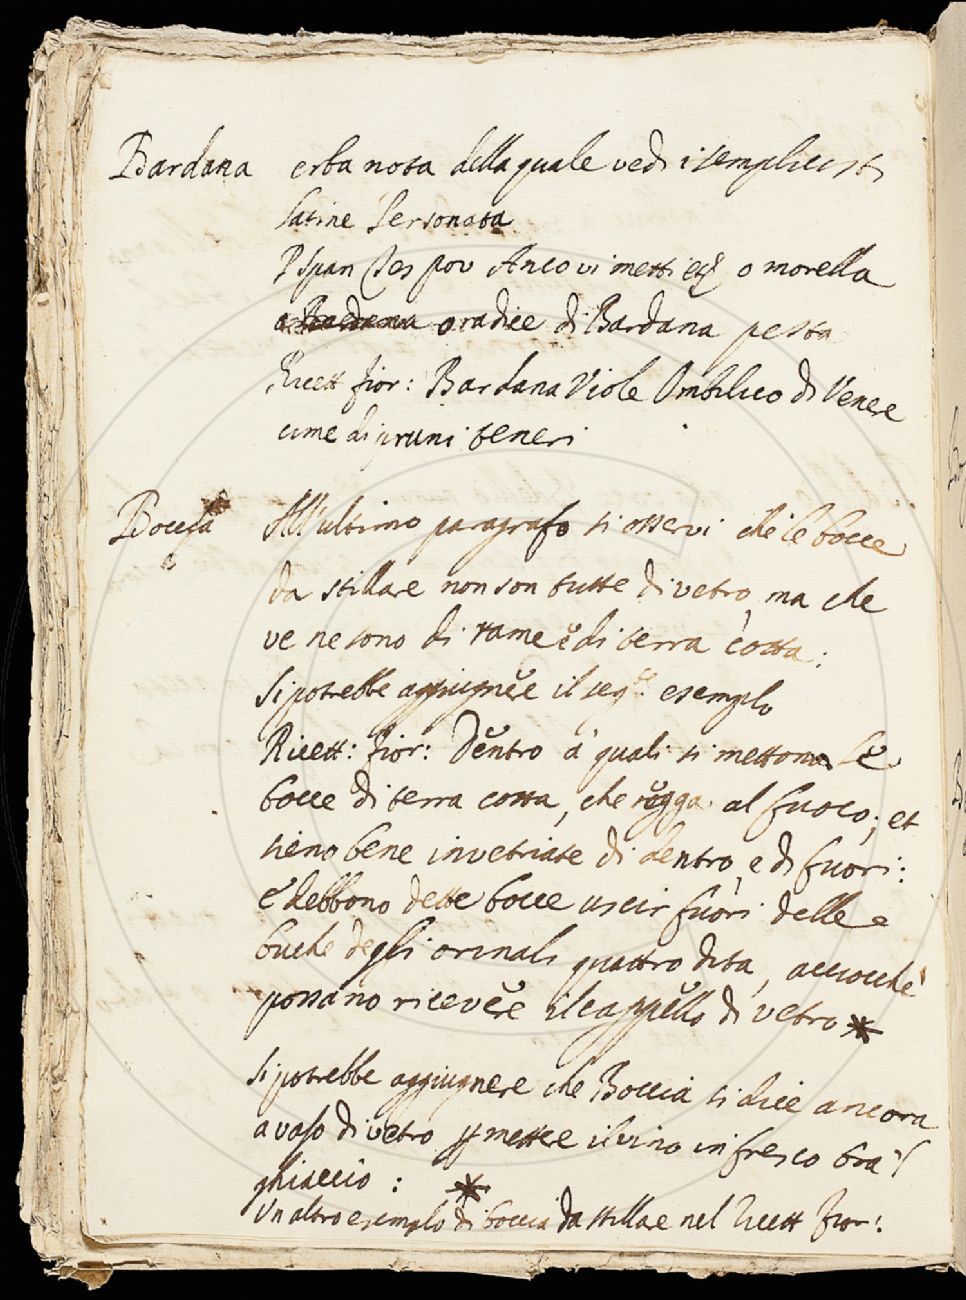 Bardana erba nota della quale vedi i semplicisti
latine Personata
P Span Tes pov Anco vi metti etc o morella
o radice di Bardana pesta
Ricett fior: Bardana Viole Ombilico di Venere
cime di pruni teneri
Boccia All'ultimo paragrafo si osservi che le bocce
da stillare non son tutte di vetro, ma che
ve ne sono di rame e di terra cotta:
Si potrebbe aggiugnere il seg.te esempio
Ricett: fior: Dentro a' quali si mettono le
bocce di terra cotta, che regga al fuoco; et
sieno bene invetriate di dentro, e di fuori:
e debbono dette bocce uscir fuori delle
buche degli orinali quattro dita, acciocchè
possano ricevere il cappello di vetro *
Si potrebbe aggiugnere che Boccia si dice ancora
a vaso di vetro mettere il vino in fresco tra 'l
ghiaccio: *
Un altro esempio di boccia da stillare nel Ricett fior: